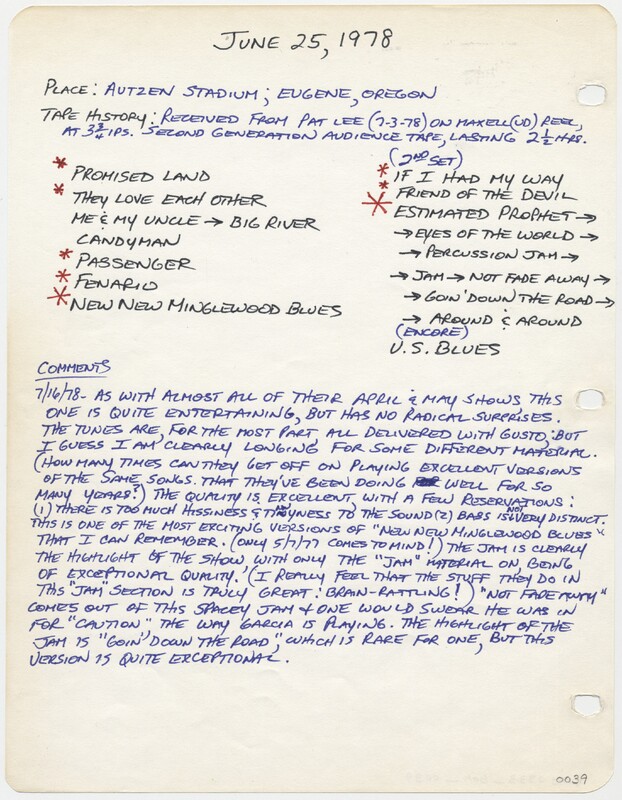 JUNE 25, 1978
PLACE: AUTZEN STADIUM; EUGENE, OREGON
TAPE HISTORY: RECEIVED FROM PAT LEE (7-3-78) ON MAXELL (UD) REEL,
AT 3 3/4 IPS. SECOND GENERATION AUDIENCE TAPE, LASTING 2 1/2 HRS.
* PROMISED LAND
* THEY LOVE EACH OTHER
ME & MY UNCLE → BIG RIVER
CANDYMAN
* PASSENGER
* FENARIO
* NEW NEW MINGLEWOOD BLUES
(2ND SET)
* IF I HAD MY WAY
* FRIEND OF THE DEVIL
* ESTIMATED PROPHET →
→ EYES OF THE WORLD →
→ PERCUSSION JAM →
→ JAM → NOT FADE AWAY →
→ GOIN' DOWN THE ROAD →
→ AROUND & AROUND
(ENCORE)
U.S. BLUES
COMMENTS
7/16/78- AS WITH ALMOST ALL OF THEIR APRIL & MAY SHOWS, THIS
ONE IS QUITE ENTERTAINING, BUT HAS NO RADICAL SURPRISES.
THE TUNES ARE, FOR THE MOST PART, ALL DELIVERED WITH GUSTO, BUT
I GUESS I AM CLEARLY LONGING FOR SOME DIFFERENT MATERIAL.
(HOW MANY TIMES CAN THEY GET OFF ON PLAYING EXCELLENT VERSIONS
OF THE SAME SONGS. THAT THEY'VE BEEN DOING WELL FOR SO
MANY YEARS?) THE QUALITY IS EXCELLENT WITH A FEW RESERVATIONS:
(1) THERE IS TOO MUCH HISSINESS & TINNYNESS TO THE SOUND (2) BASS IS NOT VERY DISTINCT.
THIS IS ONE OF THE MOST EXCITING VERSIONS OF "NEW NEW MINGLEWOOD BLUES"
THAT I CAN REMEMBER. (ONLY 5/7/77 COMES TO MIND!) THE JAM IS CLEARLY
THE HIGHLIGHT OF THE SHOW WITH ONLY THE "JAM" MATERIAL ON, BEING
OF EXCEPTIONAL QUALITY. (I REALLY FEEL THAT THE STUFF THEY DO IN
THIS "JAM" SECTION IS TRULY GREAT! BRAIN-RATTLING!) "NOT FADE AWAY"
COMES OUT OF THIS SPACEY JAM & ONE WOULD SWEAR HE WAS IN
FOR "CAUTION" THE WAY GARCIA IS PLAYING. THE HIGHLIGHT OF THE
JAM IS "GOIN' DOWN THE ROAD," WHICH IS RARE FOR ONE, BUT THIS
VERSION IS QUITE EXCEPTIONAL.
0039